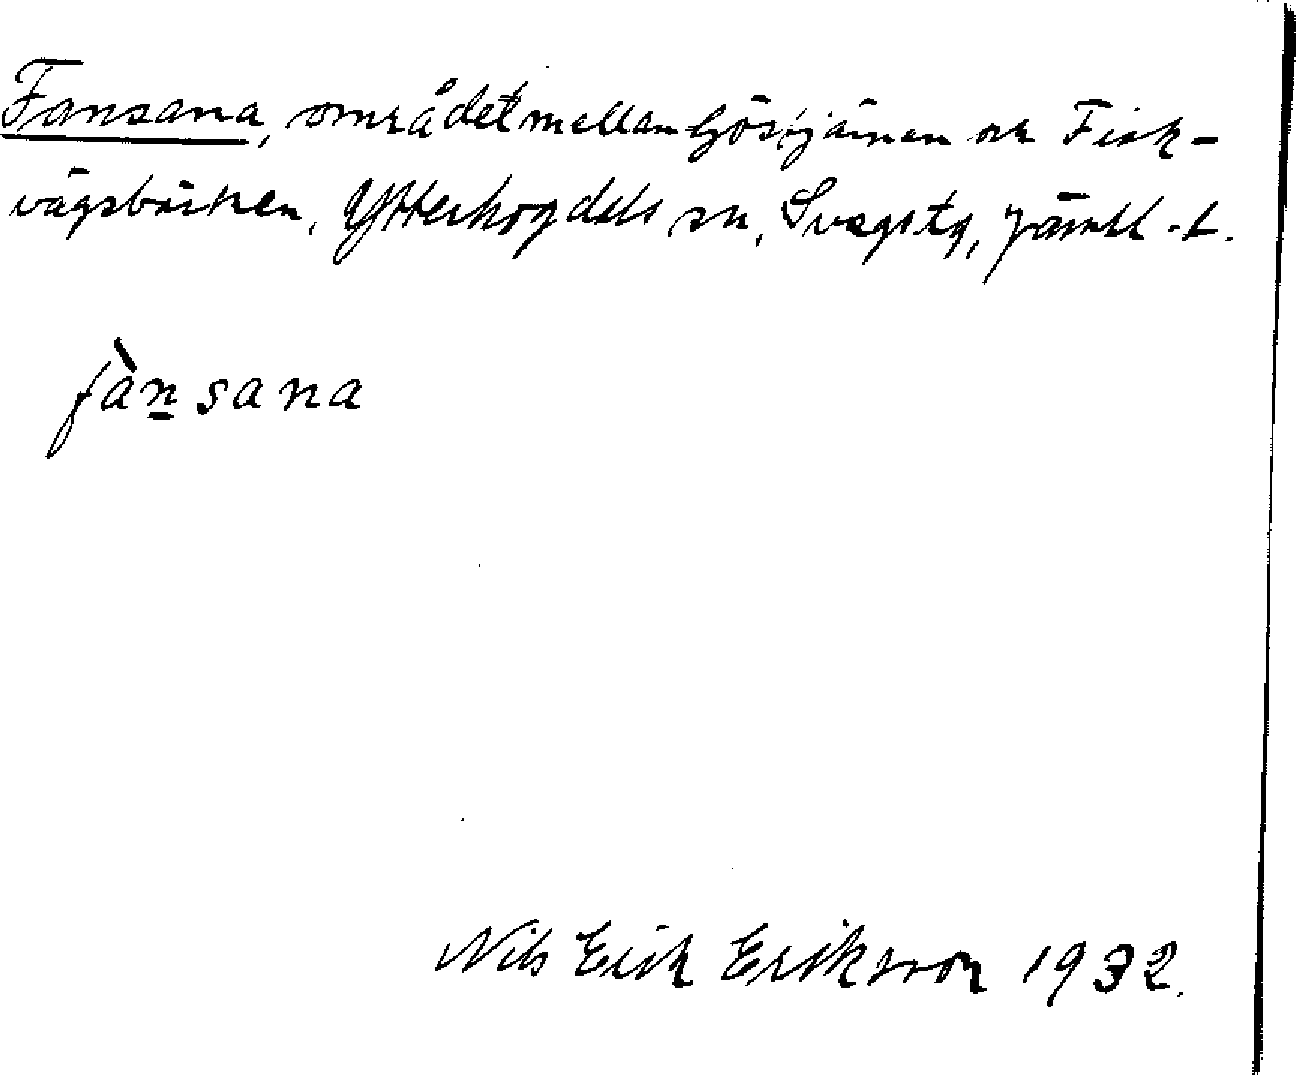 Fansana, området mellan Göstjärnen och Fisk-
vägsbäcken, Ytterhogdals sn, Svegs tg, Jämtl. l.
fànsana
Nils Erik Eriksson 1932.